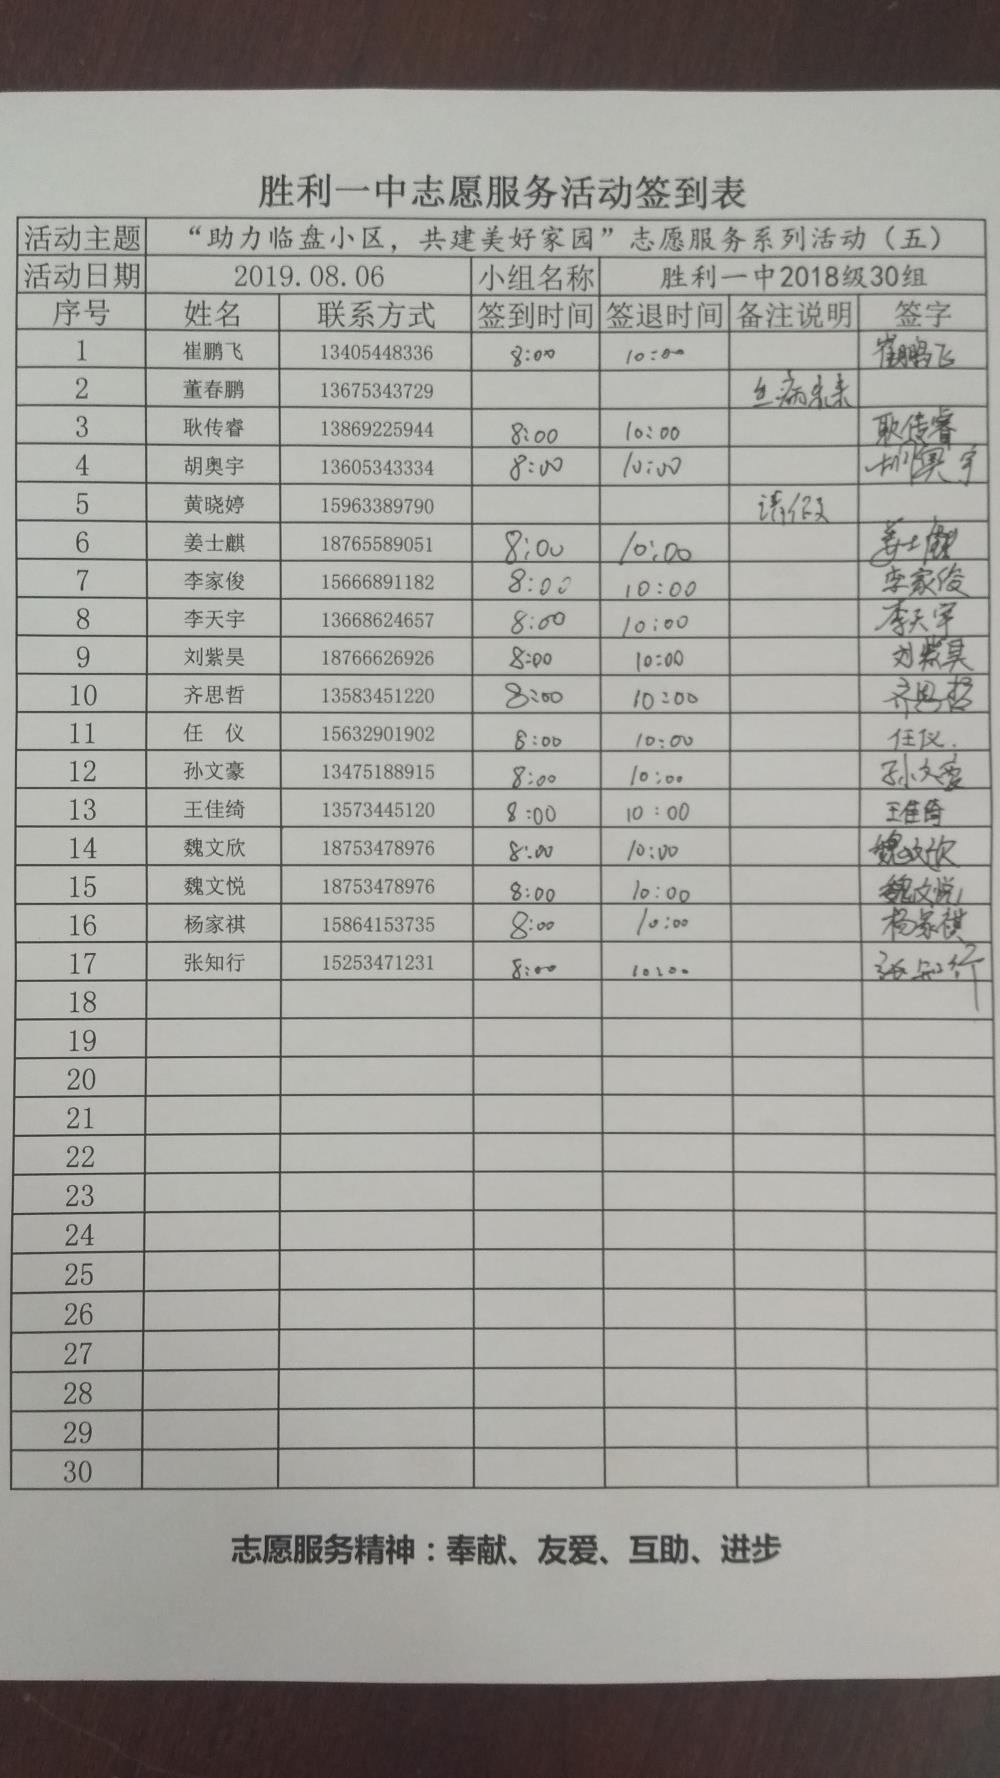 胜利一中志愿服务活动签到表
活动主题 “助力临盘小区，共建美好家园”志愿服务系列活动（五）
活动日期 2019.08.06 小组名称 胜利一中2018级30组
序号 姓名 联系方式 签到时间 签退时间 备注说明 签字
1 崔鹏飞 13405448336 8:00 10:00 崔鹏飞
2 董春鹏 13675343729 病未来
3 耿传睿 13869225944 8:00 10:00 耿传睿
4 胡奥宇 13605343334 8:00 10:00 胡奥宇
5 黄晓婷 15963389790 请假
6 姜士麒 18765589051 8:00 10:00 姜士麒
7 李家俊 15666891182 8:00 10:00 李家俊
8 李天宇 13668624657 8:00 10:00 李天宇
9 刘紫昊 18766626926 8:00 10:00 刘紫昊
10 齐思哲 13583451220 8:00 10:00 齐思哲
11 任 仪 15632901902 8:00 10:00 任仪.
12 孙文豪 13475188915 8:00 10:00 孙文豪
13 王佳绮 13573445120 8:00 10:00 王佳绮
14 魏文欣 18753478976 8:00 10:00 魏文欣
15 魏文悦 18753478976 8:00 10:00 魏文悦
16 杨家祺 15864153735 8:00 10:00 杨家祺
17 张知行 15253471231 8:00 10:00 张知行
18
19
20
21
22
23
24
25
26
27
28
29
30
志愿服务精神：奉献、友爱、互助、进步